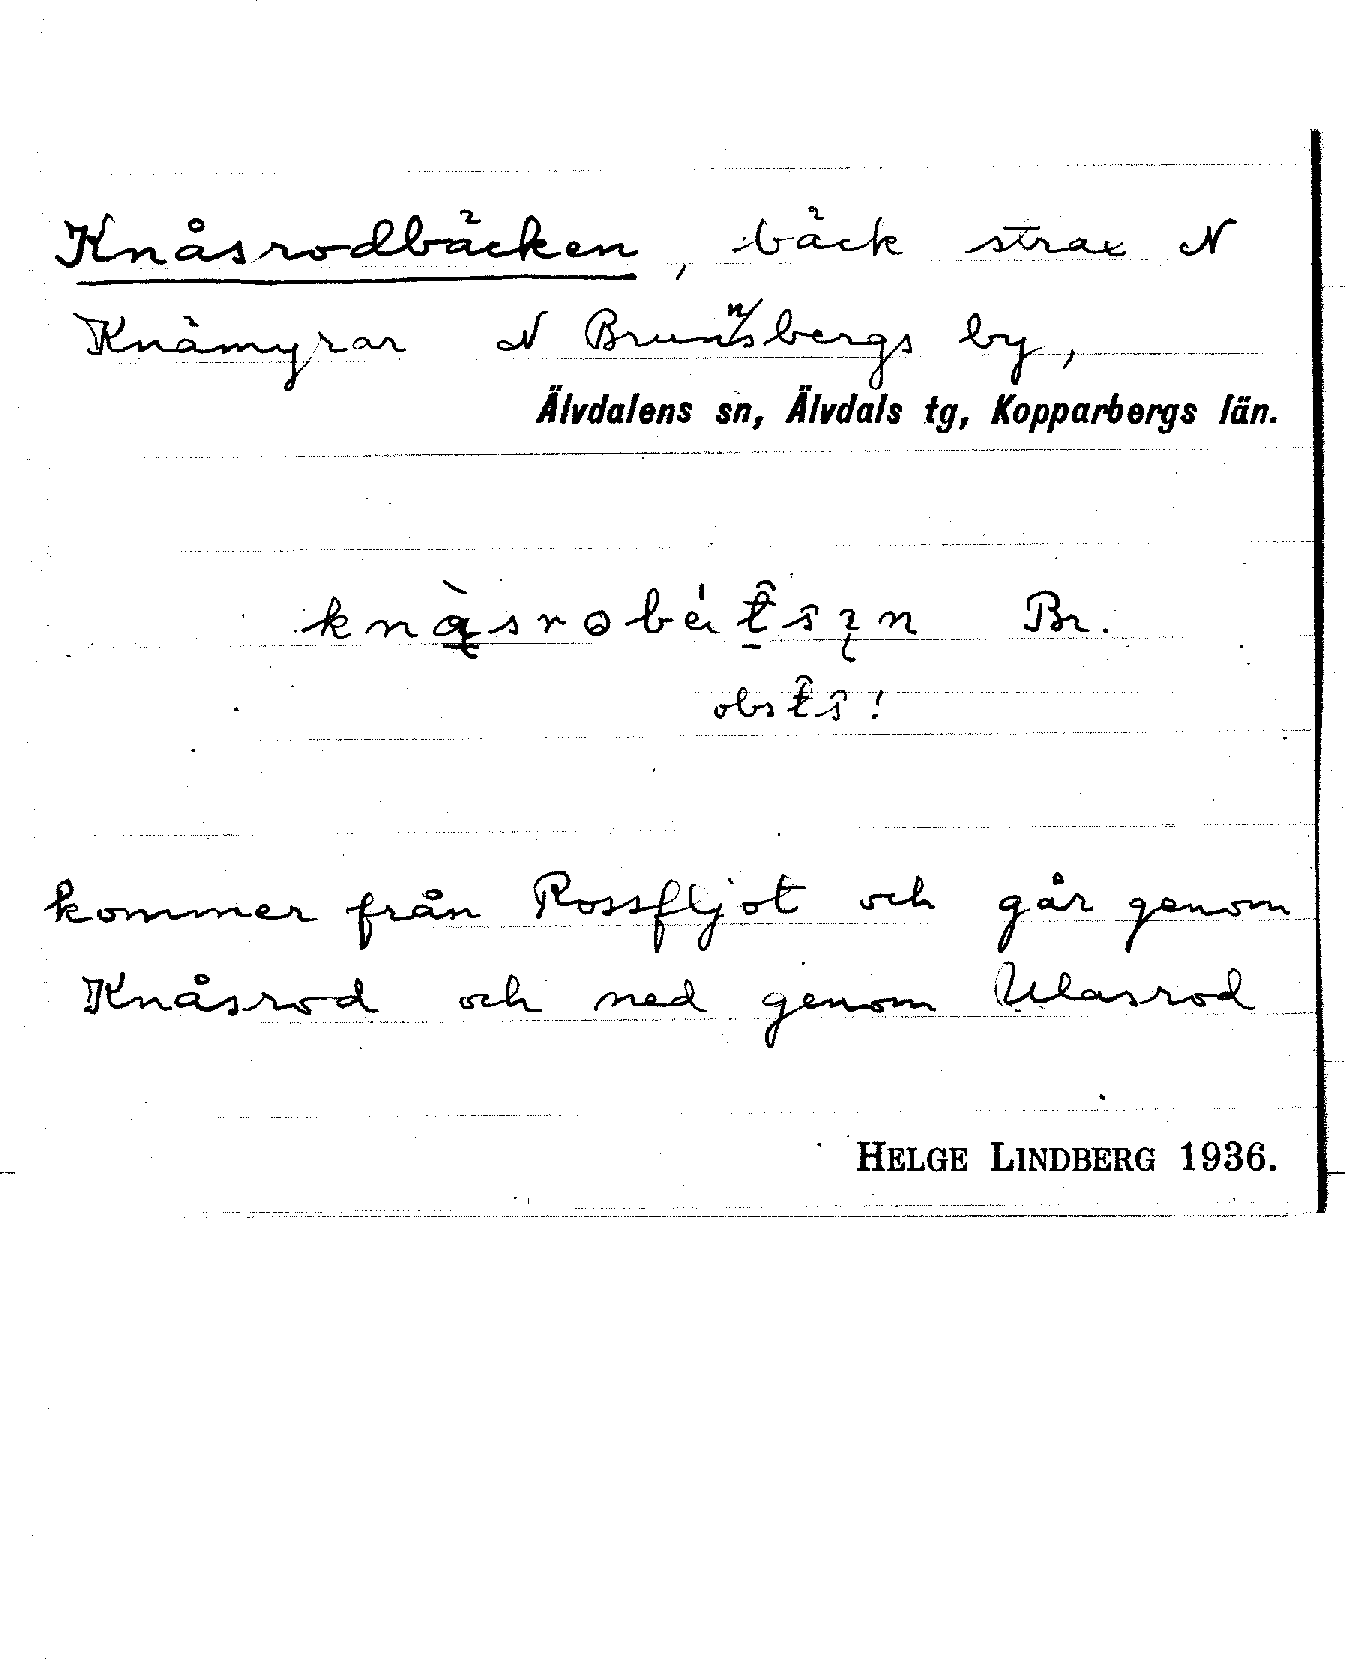 Knåsrodbäcken, bäck strax N
Knämyrar N Brunnsbergs by,
Älvdalens sn, Älvdals tg, Kopparbergs län.
Br.
obs t̂ŝ!
kommer från Rossfljot och går genom
Knåsrod och ned genom Ulasrod
HELGE LINDBERG 1936.